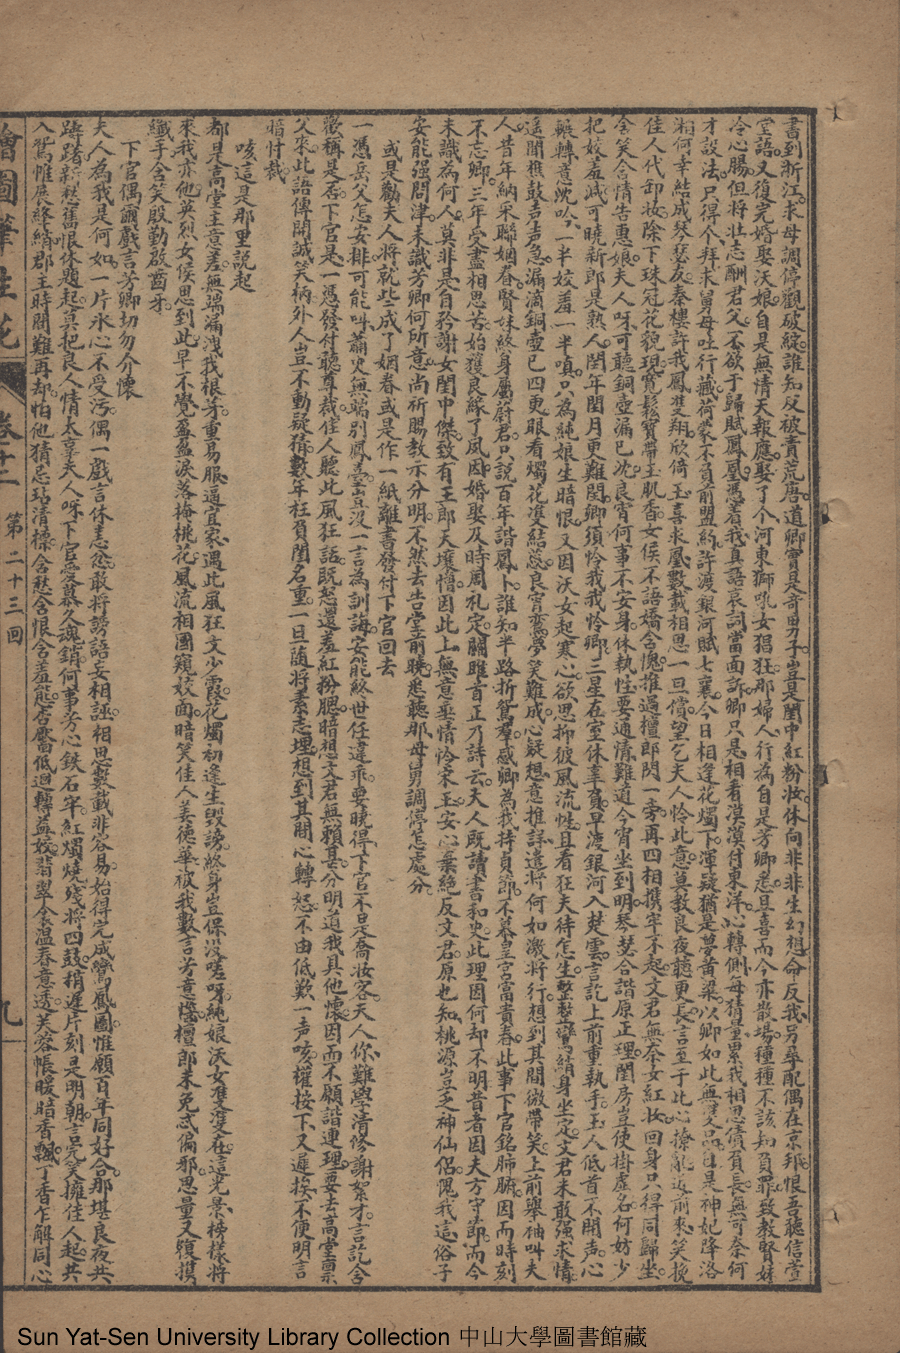 書到浙江求母調停觀破綻誰知反被責荒唐道卿實是奇男子豈是閨中紅粉妝休向非非生幻想命反我另擇配偶在京邦恨吾聽信萱
堂語又復完婚娶沃娘自是無情天報應娶了个河東獅吼女猖狂那婦人行為自是芳卿悉且喜而今亦散場種種不該知負罪致教賢妹
冷心腸但將壯志酬君父不欲于歸賦鳳凰憑着我真語哀詞當面訴卿只是相看漠漠付東洋心轉側每猜量累我相思債負長無可奈何
才設法只得个拜求舅母吐行藏荷蒙不負前盟約許渡銀河賦七襄今日相逢花燭下渾疑猶是夢黃粱以卿如此無雙品自是神妃降洛
湘何幸結成琴瑟友秦樓許我鳳雙翔欣倚玉喜求凰數載相思一旦償望乞夫人怜此意莫教良夜聽更長言至于此心撩亂近前來笑挽
佳人代卸妝除下珠冠花貌現寬鬆寶帶玉肌香女侯不語嬌含愧推過檀郎閃一旁再四相攜牢不起文君無奈女紅妝回身只得同歸坐
含笑含情告惠娘夫人呀可聽銅壺漏已沈良宵何事不安身休執性要通情難道今宵坐到明琴瑟合諧原正理閨房豈使掛虛名何妨少
把姣羞減可曉新郎是熟人閏年閏月更難閏卿須怜我我怜卿三星在室休辜負早渡銀河入楚雲言訖上前重執手玉人低首不開声心
輾轉意沉吟一半姣羞一半嗔只為純娘生暗恨又因沃女起寒心欲思抑彼風流性且看狂夫待怎生整整鸞綃身坐定文君未敢強求情
遥聞樵鼓声声急漏滴銅壺已四更眼看燭花雙結蕊良宵鴛夢笑難成心疑想意推詳這將何如激將行想到其間微帶笑上前舉袖叫夫
人昔年納采聯姻眷賢妹終身屬蔚君只說百年諧鳳卜誰知半路折鴛羣感卿為我持貞節不慕皇宮富貴春此事下官銘肺腑因而時刻
不忘卿三年受盡相思苦始獲良緣了夙因婚娶及時周礼定關雎首正乃詩云夫人既讀書和史此理因何却不明昔者因夫方守節而今
未識為何人莫非是自矜謝女閨中傑致有王郎天壤憎因此上無意垂情怜宋玉安心棄絕反文君原也知桃源豈乏神仙侶愧我這俗子
安能強問津未識芳卿何所意尚祈賜教示分明不然去告堂前曉悉聽那母舅調停怎處分
或是勸夫人將就些成了姻眷或是作一紙離書發付下官回去
一憑岳父怎安排可能叫蕭史無端別鳳臺豈沒一言為訓誨安能終世任違乖要曉得下官不是喬妝客夫人你難學清修謝絮才言訖含
歡稱是否下官是一憑發付聽尊裁佳人聽此風狂語既怒還羞紅粉腮暗想文君無賴甚分明道我具他懷因而不願諧連理要去高堂禀
父來此語傳開誠笑柄外人豈不動疑猜數年枉負閨名重一旦隨將素志埋想到其間心轉怒不由低歎一声咳權按下又遲捱不便明言
暗忖裁
咳這是那里說起
都是高堂主意差無端漏洩我根芽重易服逼宜家遇此風狂文少霞花燭初逢生毀謗終身豈保沒嗟呀純娘沃女雙雙在這光景榜樣將
來我亦他英烈女侯思到此早不覺盈盈淚落掩桃花風流相國窺姣面暗笑佳人姜德華被我數言芳意惱檀郎未免忒偏邪思量又復摸
纖手含笑殷勤啟齒牙
下官偶爾戲言芳卿切勿介懷
夫人為我是何如一片氷心不受污偶一戲言休恚怨敢將謗語妄相誣相思數載非容易始得完成鸞鳳圖惟願百年同好合那堪良夜共
躊躇新愁舊恨休題起莫把良人情太辜夫人呀下官愛慕人魂銷何事芳心鉄石牢紅燭燒殘將四鼓稍遲片刻是明朝言完笑擁佳人起共
入鴛帷展絳綃郡主時間難再却怕他猜忌玷清標含愁含恨含羞態杏靨低迴轉益姣翡翠衾温春意透芙蓉帳暖暗香飄丁香乍解同心
繪圖筆生花 卷十二 第二十三回 九
Sun Yat-Sen University Library Collection 中山大學圖書館藏